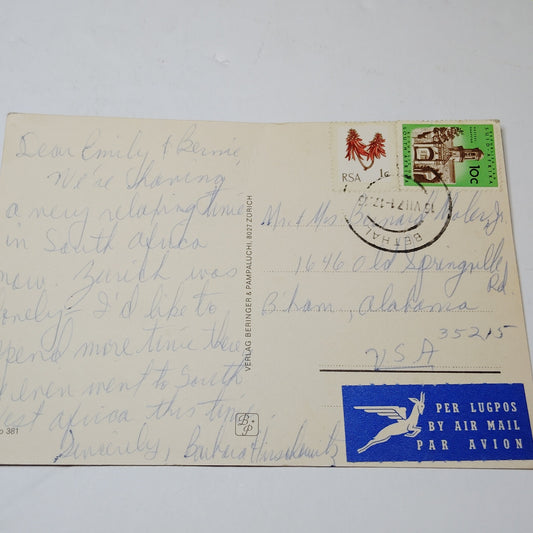 Dear Emily & Bernie,
We're having
a very relaxing time
in South Africa
now. Zurich was
lovely - I'd like to
spend more time there
We even went to South
West Africa this time.
Sincerely, Barbara
381
VERLAG BERINGER & PAMPALUCHI, 8027 ZÜRICH
RSA 1c
10c
BETHAL
Mr. & Mrs. Bernard
1646 Old Springville
Rd.
B'ham, Alabama
35215
USA
PER LUGPOS
BY AIR MAIL
PAR AVION